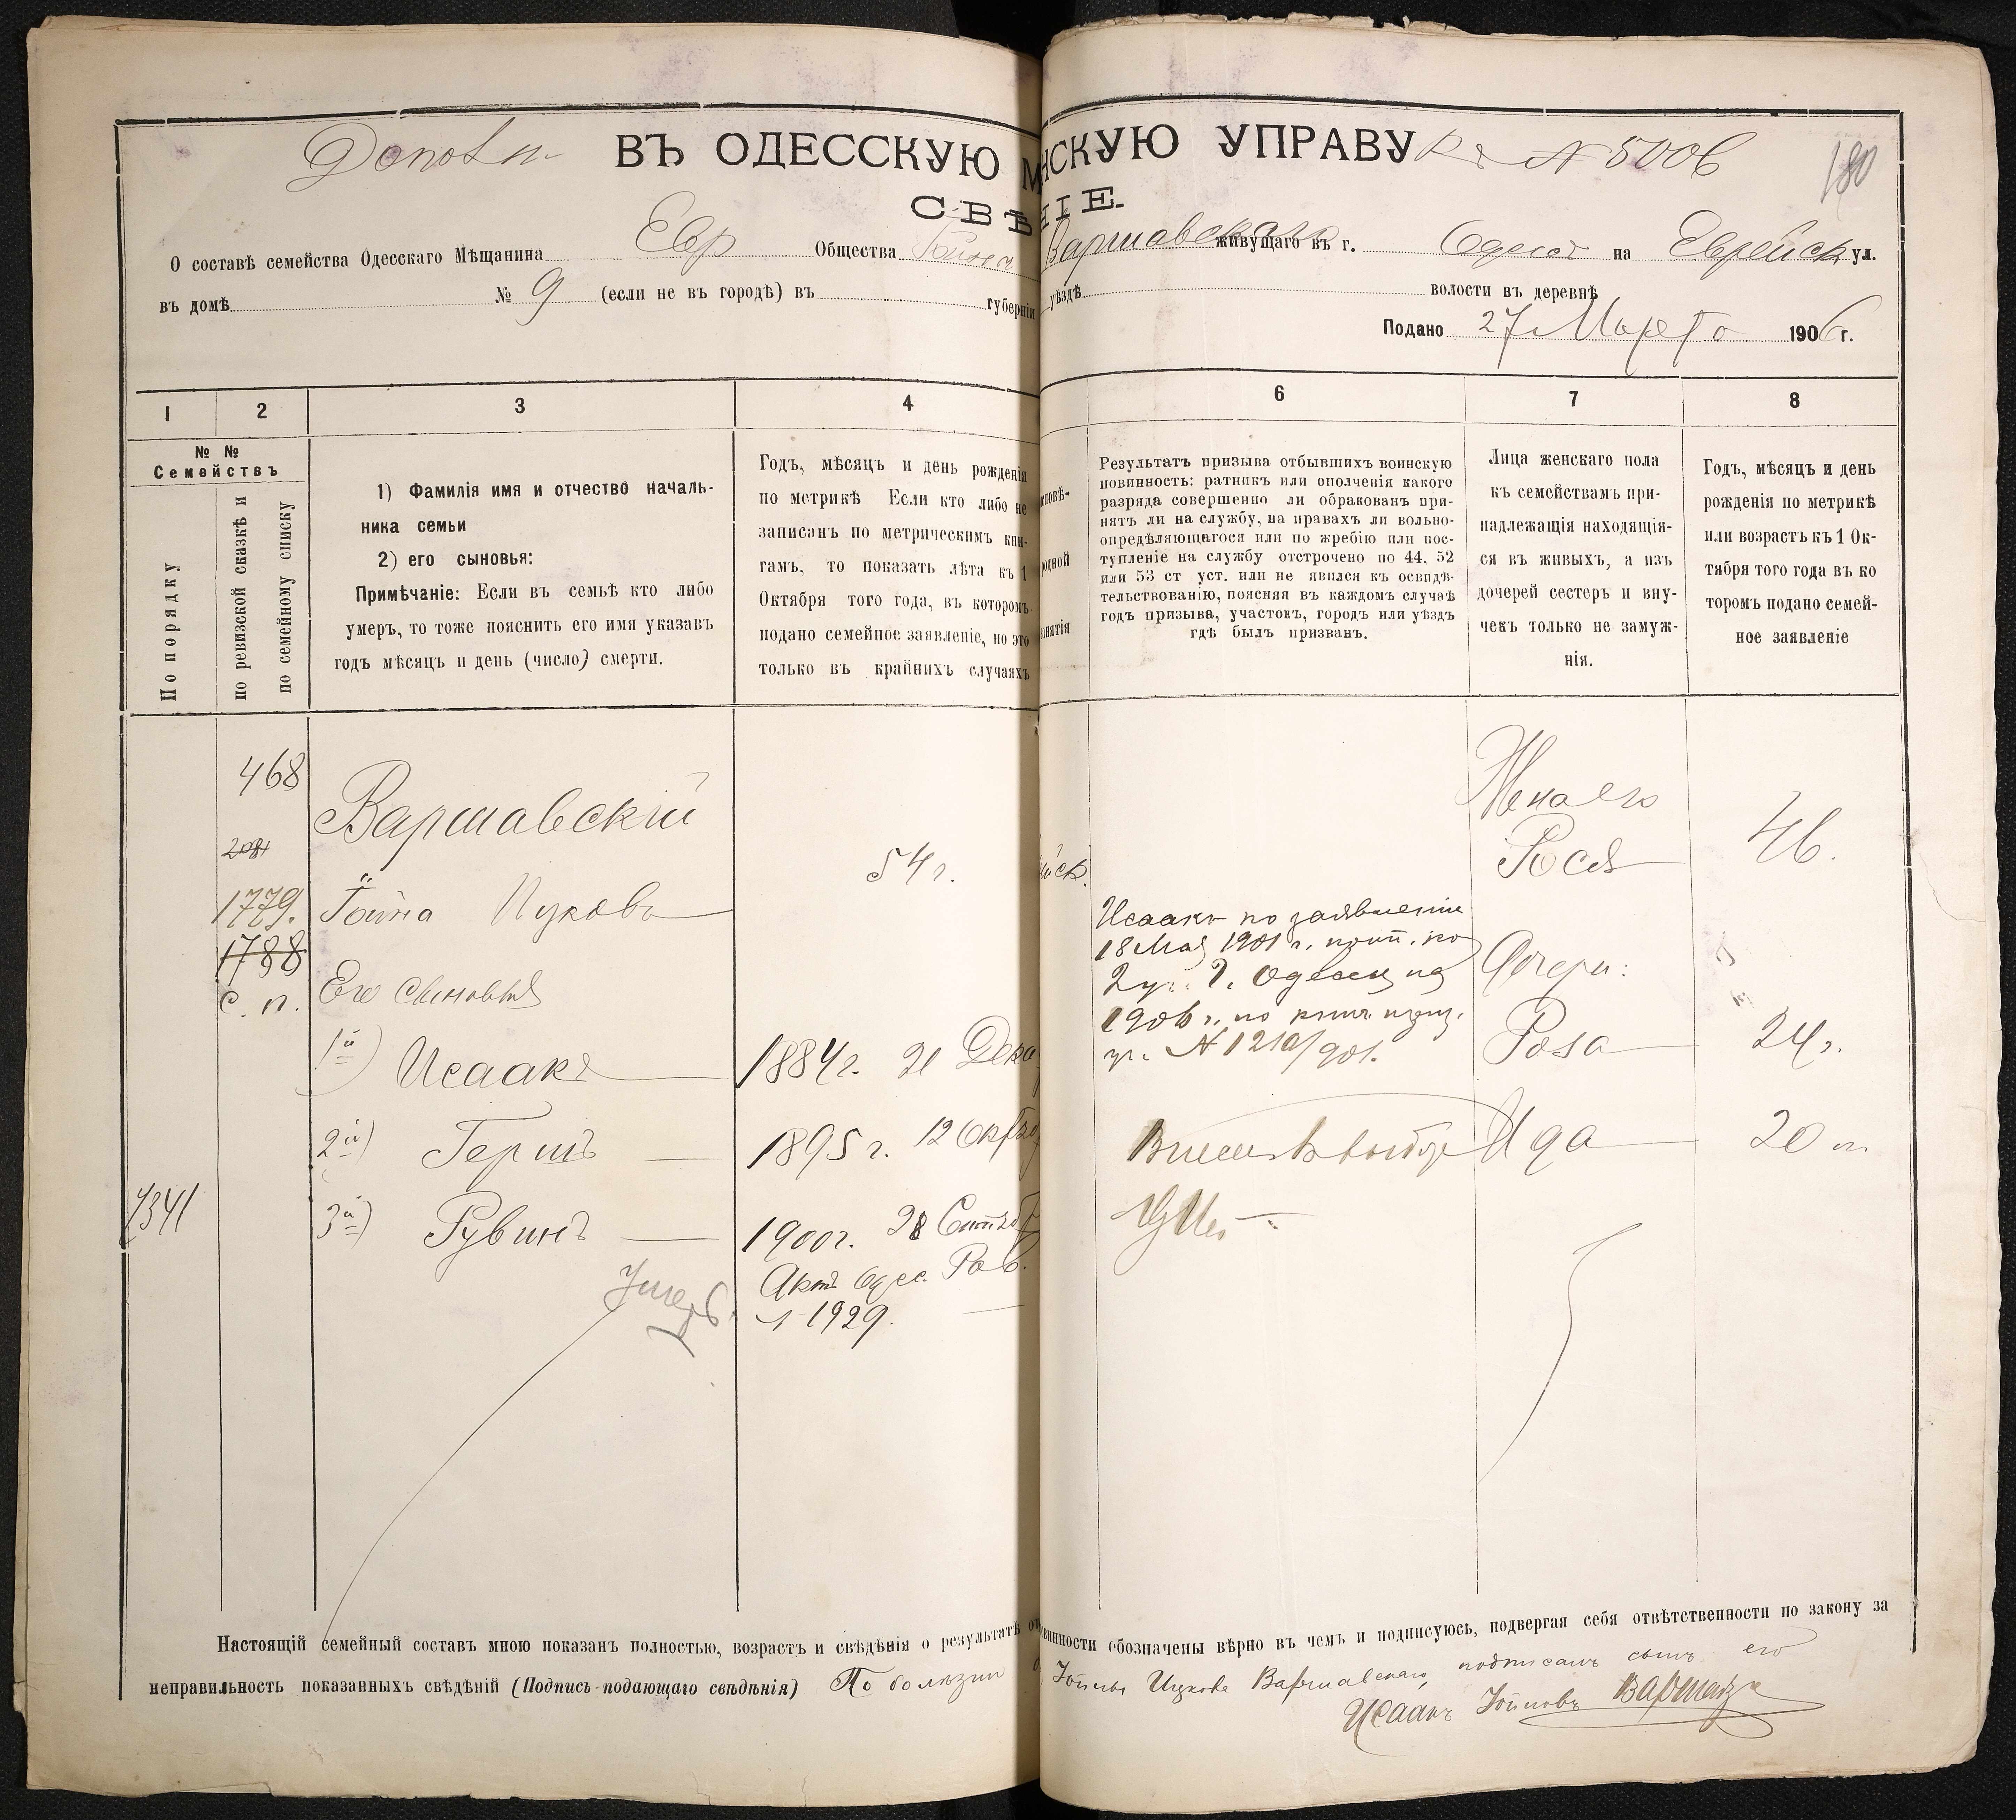 ВЪ ОДЕССКУЮ М НСКУЮ УПРАВУ № 5006
180
СВѢ НІЕ.
О составѣ семейства Одесскаго Мѣщанина Евр Общества Варшавскаго живущаго въ г. на Еврейск ул.
въ домѣ № 9 (если не въ городѣ) въ губерніи уѣздѣ волости въ деревнѣ
Подано 27 Марта 1906 г.
1 2 3 4 6 7 8
№ №
Семействъ
По порядку
по ревизской сказкѣ и
по семейному списку
1) Фамилія имя и отчество началь-
ника семьи
2) его сыновья:
Примѣчаніе: Если въ семьѣ кто либо
умеръ, то тоже пояснить его имя указавъ
годъ мѣсяцъ и день (число) смерти.
Годъ, мѣсяцъ и день рожденія
по метрикѣ Если кто либо не
записанъ по метрическимъ кни-
гамъ, то показать лѣта къ 1
Октября того года, въ которомъ
подано семейное заявленіе, но это
только въ крайнихъ случаяхъ
Результатъ призыва отбывшихъ воинскую
повинность: ратникъ или ополченія какого
разряда совершенно ли обракованъ при-
нятъ ли на службу, на правахъ ли вольно-
опредѣляющагося или по жребію или пос-
тупленіе на службу отстрочено по 44, 52
или 53 ст уст. или не явился къ освидѣ-
тельствованію, поясняя въ каждомъ случаѣ
годъ призыва, участокъ, городъ или уѣздъ
гдѣ былъ призванъ.
Лица женскаго пола
къ семействамъ при-
надлежащія находящія-
ся въ живыхъ, а изъ
дочерей сестеръ и вну-
чекъ только не замуж-
нія.
Годъ, мѣсяцъ и день
рожденія по метрикѣ
или возрастъ къ 1 Ок-
тября того года въ ко
торомъ подано семей-
ное заявленіе
468
Варшавскій
54 г.
Жена его
46.
1779. Іойна Ицковъ
1788
с. п. Его сыновья
Исаакъ по заявленію
18 Мая 1901 г.
1906 г. по
№ 1210/901.
Дочери:
1й) Исаакъ 1884 г. 21 Дека
Роза 24 г.
2й) Гершъ 1895 г. 12 Октяб
Ида 20
1341 3й) Рувинъ 1900 г. 28 Сентяб
Умеръ. Актъ Одес. Рав.
1929.
Настоящій семейный составъ мною показанъ полностью, возрастъ и свѣдѣнія о результатѣ от винности обозначены вѣрно въ чемъ и подписуюсь, подвергая себя отвѣтственности по закону за
неправильность показанныхъ свѣдѣній (Подпись подающаго свѣдѣнія) По болѣзни Ицкова Варшавскаго, подписалъ сынъ его
Исаакъ Іойновъ